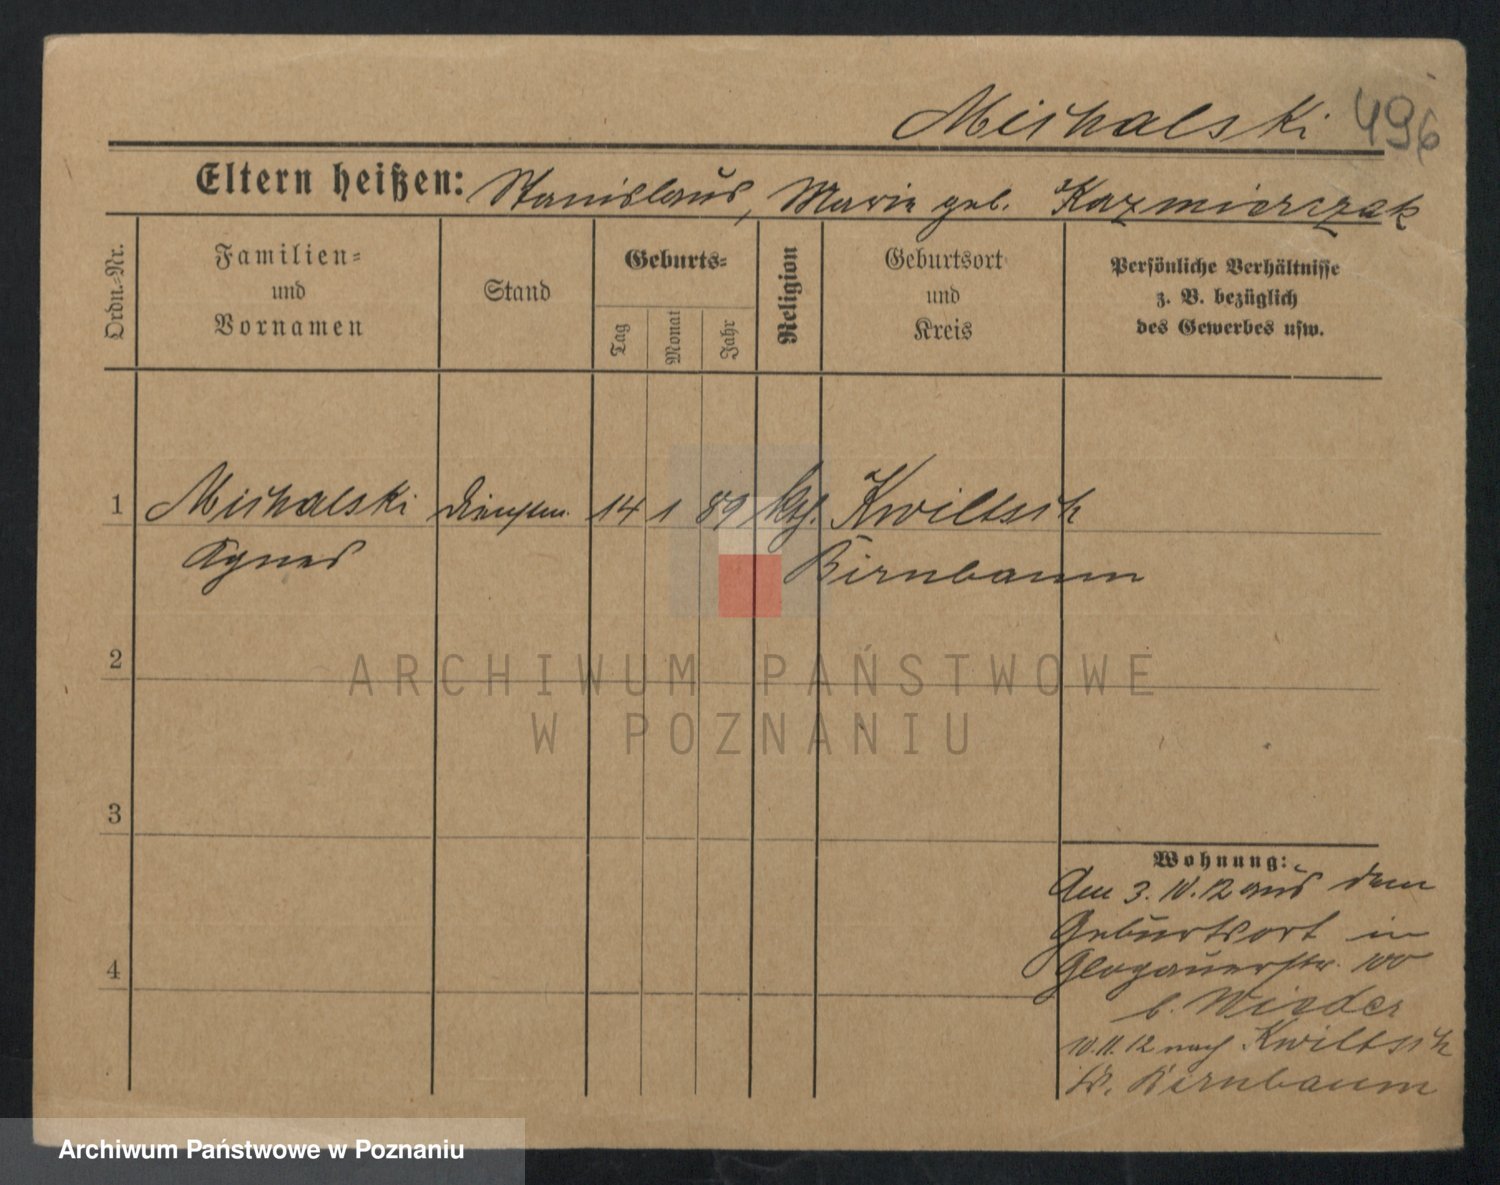 Michalski 496
Eltern heißen: Stanislaus, Marie geb. Kazmierczak
Ordn.-Nr.
Familien-
und
Vornamen
Stand
Geburts-
Tag
Monat
Jahr
Religion
Geburtsort
und
Kreis
Persönliche Verhältnisse
z. B. bezüglich
des Gewerbes usw.
1 Michalski 14 1 89 kth. Kwiltsch
Agnes Birnbaum
2
ARCHIWUM PAŃSTWOWE
W POZNANIU
3
4
Wohnung:
Am 3. 10. 12 aus dem
Geburtsort in
Glogauerstr. 100
b. Wieder
10.11.12 nach Kwiltsch
Kr. Birnbaum
Archiwum Państwowe w Poznaniu